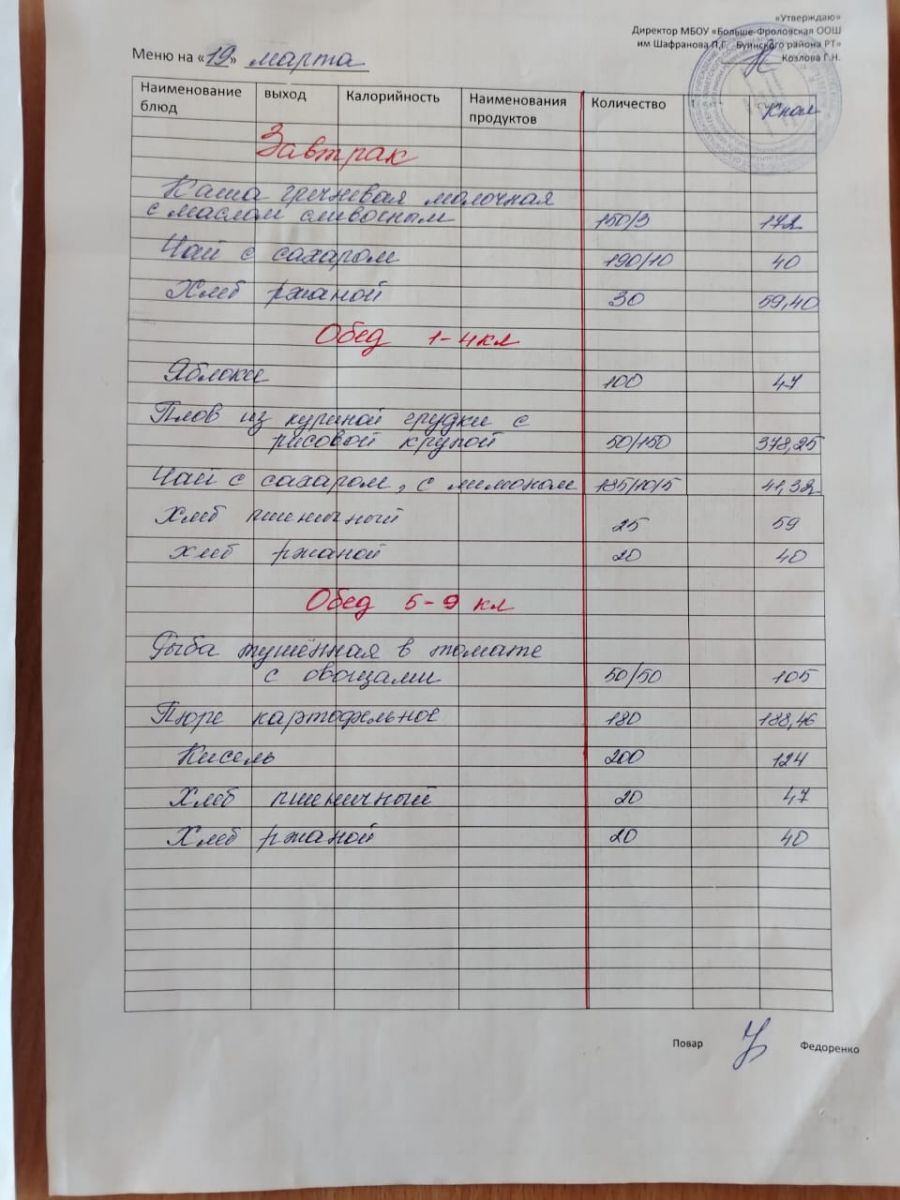 «Утверждаю»
Директор МБОУ «Больше-Фроловская ООШ
им Шафранова П.Г. Буинского района РТ»
Козлова Г.Н.
Меню на «19» марта
Наименование блюд выход Калорийность Наименования продуктов Количество Ккал
Завтрак
Каша гречневая молочная
с маслом сливочным 150/3 172
Чай с сахаром 190/10 40
Хлеб ржаной 30 59,40
Обед 1-4кл
Яблоко 100 47
Плов из куриной грудки с
рисовой крупой 50/150 378,25
Чай с сахаром, с лимоном 185/10/5 41,32
Хлеб пшеничный 25 59
хлеб ржаной 20 40
Обед 5-9 кл
Рыба тушённая в томате
с овощами 50/50 105
Пюре картофельное 180 188,46
Кисель 200 124
Хлеб пшеничный 20 47
Хлеб ржаной 20 40
Повар Федоренко